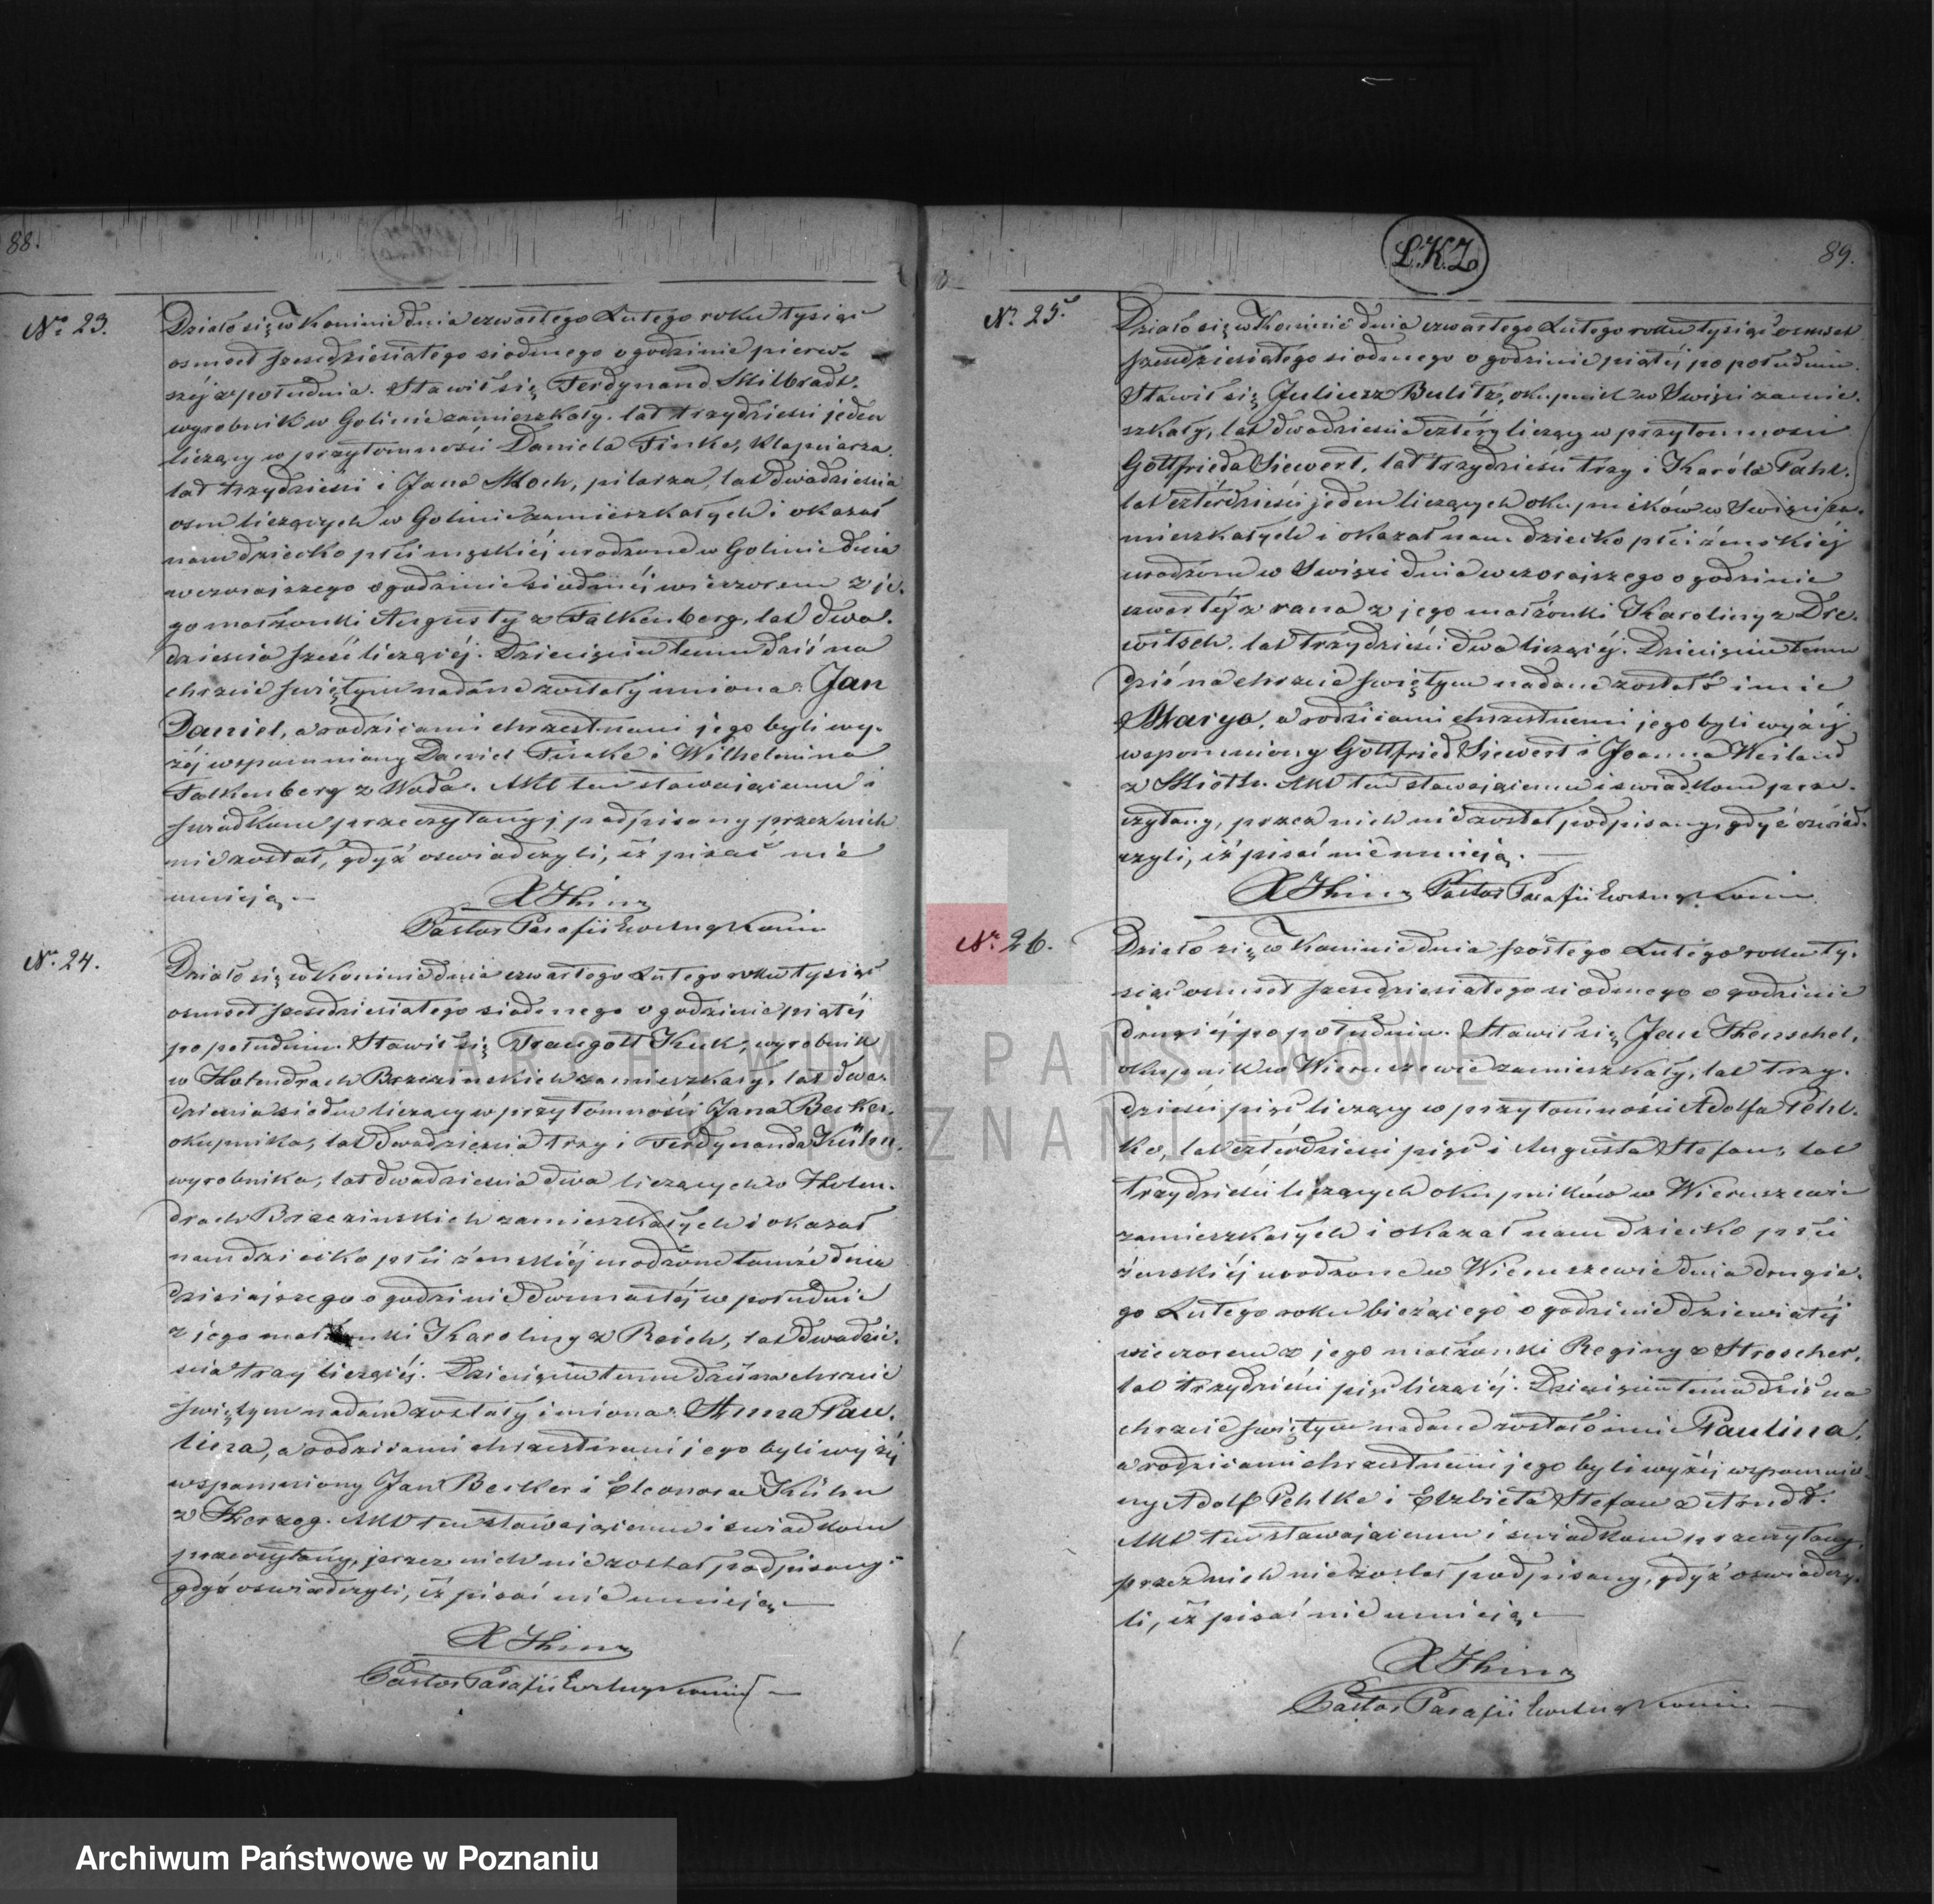 88.
No 23.
Działo się w Koninie dnia czwartego Lutego roku tysiąc
osmset szesdziesiątego siodmego o godzinie pierw-
széj z południa. Stawił się Ferdynand Milbradt,
wyrobnik w Golinie zamieszkały, lat trzydzieści jeden
liczący w przytomności Daniela Finke, Klapniarza,
lat trzydzieści i Jana Moch, pilarza, lat dwadzieścia
osm liczących w Golinie zamieszkałych i okazał
nam dziecko płci męskiéj urodzone w Golinie dnia
wczorajszego o godzinie siódméj wieczorem z je-
go małżonki Augusty z Falkenberg, lat dwa-
dzieścia sześć liczącéj. Dziecięciu temu dziś na
chrzcie świętym nadane zostały imiona: Jan
Daniel, a rodzicami chrzestnemi jego byli wy-
żéj wspomniony Daniel Finke i Wilhelmina
Falkenberg z Woda. Akt ten stawającemu i
świadkom przeczytany, podpisany przez nich
nie został, gdyż oswiadczyli, iż pisać nie
umieją.
X Thinz
Pastor Parafii Ewang Konin
Nr. 24.
Działo się w Koninie dnia czwartego Lutego roku tysiąc
osmset szesdziesiątego siodmego o godzinie piątéj
po południu. Stawił się Traugott Kuk, wyrobnik
w Holendrach Brzezinskich zamieszkały, lat dwa-
dzieścia siedm liczący w przytomności Jana Becker,
okupnika, lat dwadzieścia trzy i Ferdynanda Kühn,
wyrobnika, lat dwadzieścia dwa liczących w Holen-
drach Brzezinskich zamieszkałych i okazał
nam dziecko płci żeńskiéj urodzone tamże dnia
dzisiajszego o godzinie dwunastéj w południe
z jego małżonki Karoliny z Reich, lat dwadzie-
ścia trzy liczącéj. Dziecięciu temu dziś na chrzcie
świętym nadane zostały imiona: Anna Pau-
lina, a rodzicami chrzestnemi jego byli wyżéj
wspomniony Jan Becker i Eleonora Kühn
z Herzog. Akt ten stawającemu i świadkom
przeczytany, przez nich nie został podpisany
gdyż oswiadczyli, iż pisać nie umieją.
X Thinz
Pastor Parafii Ewang Konin
L.K.Z
89.
Nr. 25.
Działo się w Koninie dnia czwartego Lutego roku tysiąc osmset
szesdziesiątego siodmego o godzinie piątéj po południu.
Stawił się Juliusz Bulitz, okupnik w Święci zamie-
szkały, lat dwadzieścia cztery liczący w przytomności
Gottfrieda Siewert, lat trzydzieści trzy i Karóla Pahl,
lat czterdzieści jeden liczących okupników w Święci za-
mieszkałych i okazał nam dziecko płci żeńskiéj
urodzone w Święci dnia wczorajszego o godzinie
czwartéj z rana z jego małżonki Karoliny z Dre-
witsch, lat trzydzieści dwa liczącéj. Dziecięciu temu
dziś na chrzcie świętym nadane zostało imie
Marya, a rodzicami chrzestnemi jego byli wyżéj
wspomniony Gottfried Siewert i Joanna Weiland
z Miotk. Akt ten stawającemu i świadkom prze-
czytany, przez nich nie został podpisany, gdyż oswiad-
czyli, iż pisać nie umieją.
X Thinz Pastor Parafii Ewang Konin
Nr. 26.
Działo się w Koninie dnia szóstego Lutego roku ty-
siąc osmset szesdziesiątego siodmego o godzinie
drugiéj po południu. Stawił się Jan Henschel,
okupnik w Wieruszewie zamieszkały, lat trzy-
dzieści pięć liczący w przytomności Adolfa Pehl-
ke, lat czterdzieści pięć i Augusta Stefan, lat
trzydzieści liczących okupników w Wieruszewie
zamieszkałych i okazał nam dziecko płci
żeńskiéj urodzone w Wieruszewie dnia drugie-
go Lutego roku bieżącego o godzinie dziewiątéj
wieczorem z jego małżonki Reginy z Stroscher,
lat trzydzieści pięć liczącéj. Dziecięciu temu dziś na
chrzcie świętym nadane zostało imie Paulina,
a rodzicami chrzestnemi jego byli wyżéj wspomnio-
ny Adolf Pehlke i Elzbieta Stefan z Arndt.
Akt ten stawającemu i świadkom przeczytany,
przez nich nie został podpisany, gdyż oswiadczy-
li, iż pisać nie umieją.
X Thinz
Pastor Parafii Ewang Konin
ARCHIWUM PAŃSTWOWE
W POZNANIU
Archiwum Państwowe w Poznaniu